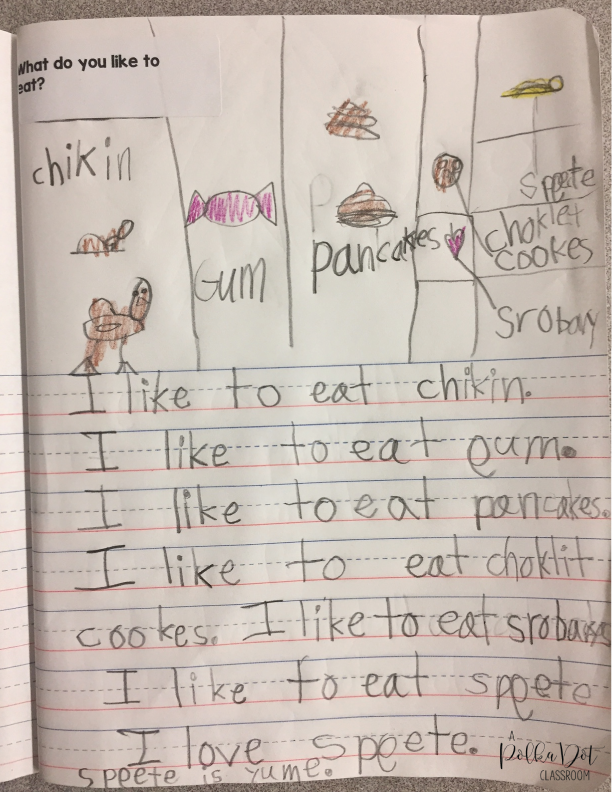 What do you like to
eat?
chikin
Gum
pancakes
speete
choklet
cookes
Srobary
I like to eat chikin.
I like to eat gum.
I like to eat pancakes.
I like to eat choklit
cookes. I like to eat srobarys
I like to eat speete
I love speete.
speete is yume.
A
Polka Dot
CLASSROOM